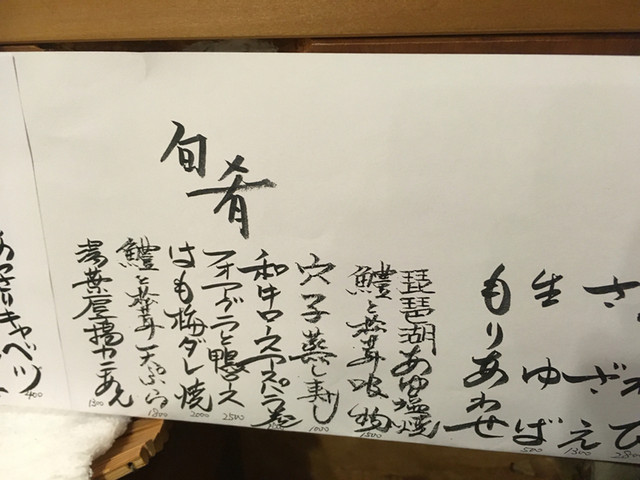 さざえ
1300
生ゆば
500
もりあわせ
琵琶湖あゆ塩焼
鱧と松茸吸物
1500
穴子蒸し寿し
1000
和牛ロースアスパラ巻
フォアグラと鴨ロース
2500
はも梅ダレ焼
2000
鱧と松茸天ぷら
1800
湯葉唐揚カニあん
1300
旬肴
あっさりキャベツ
400